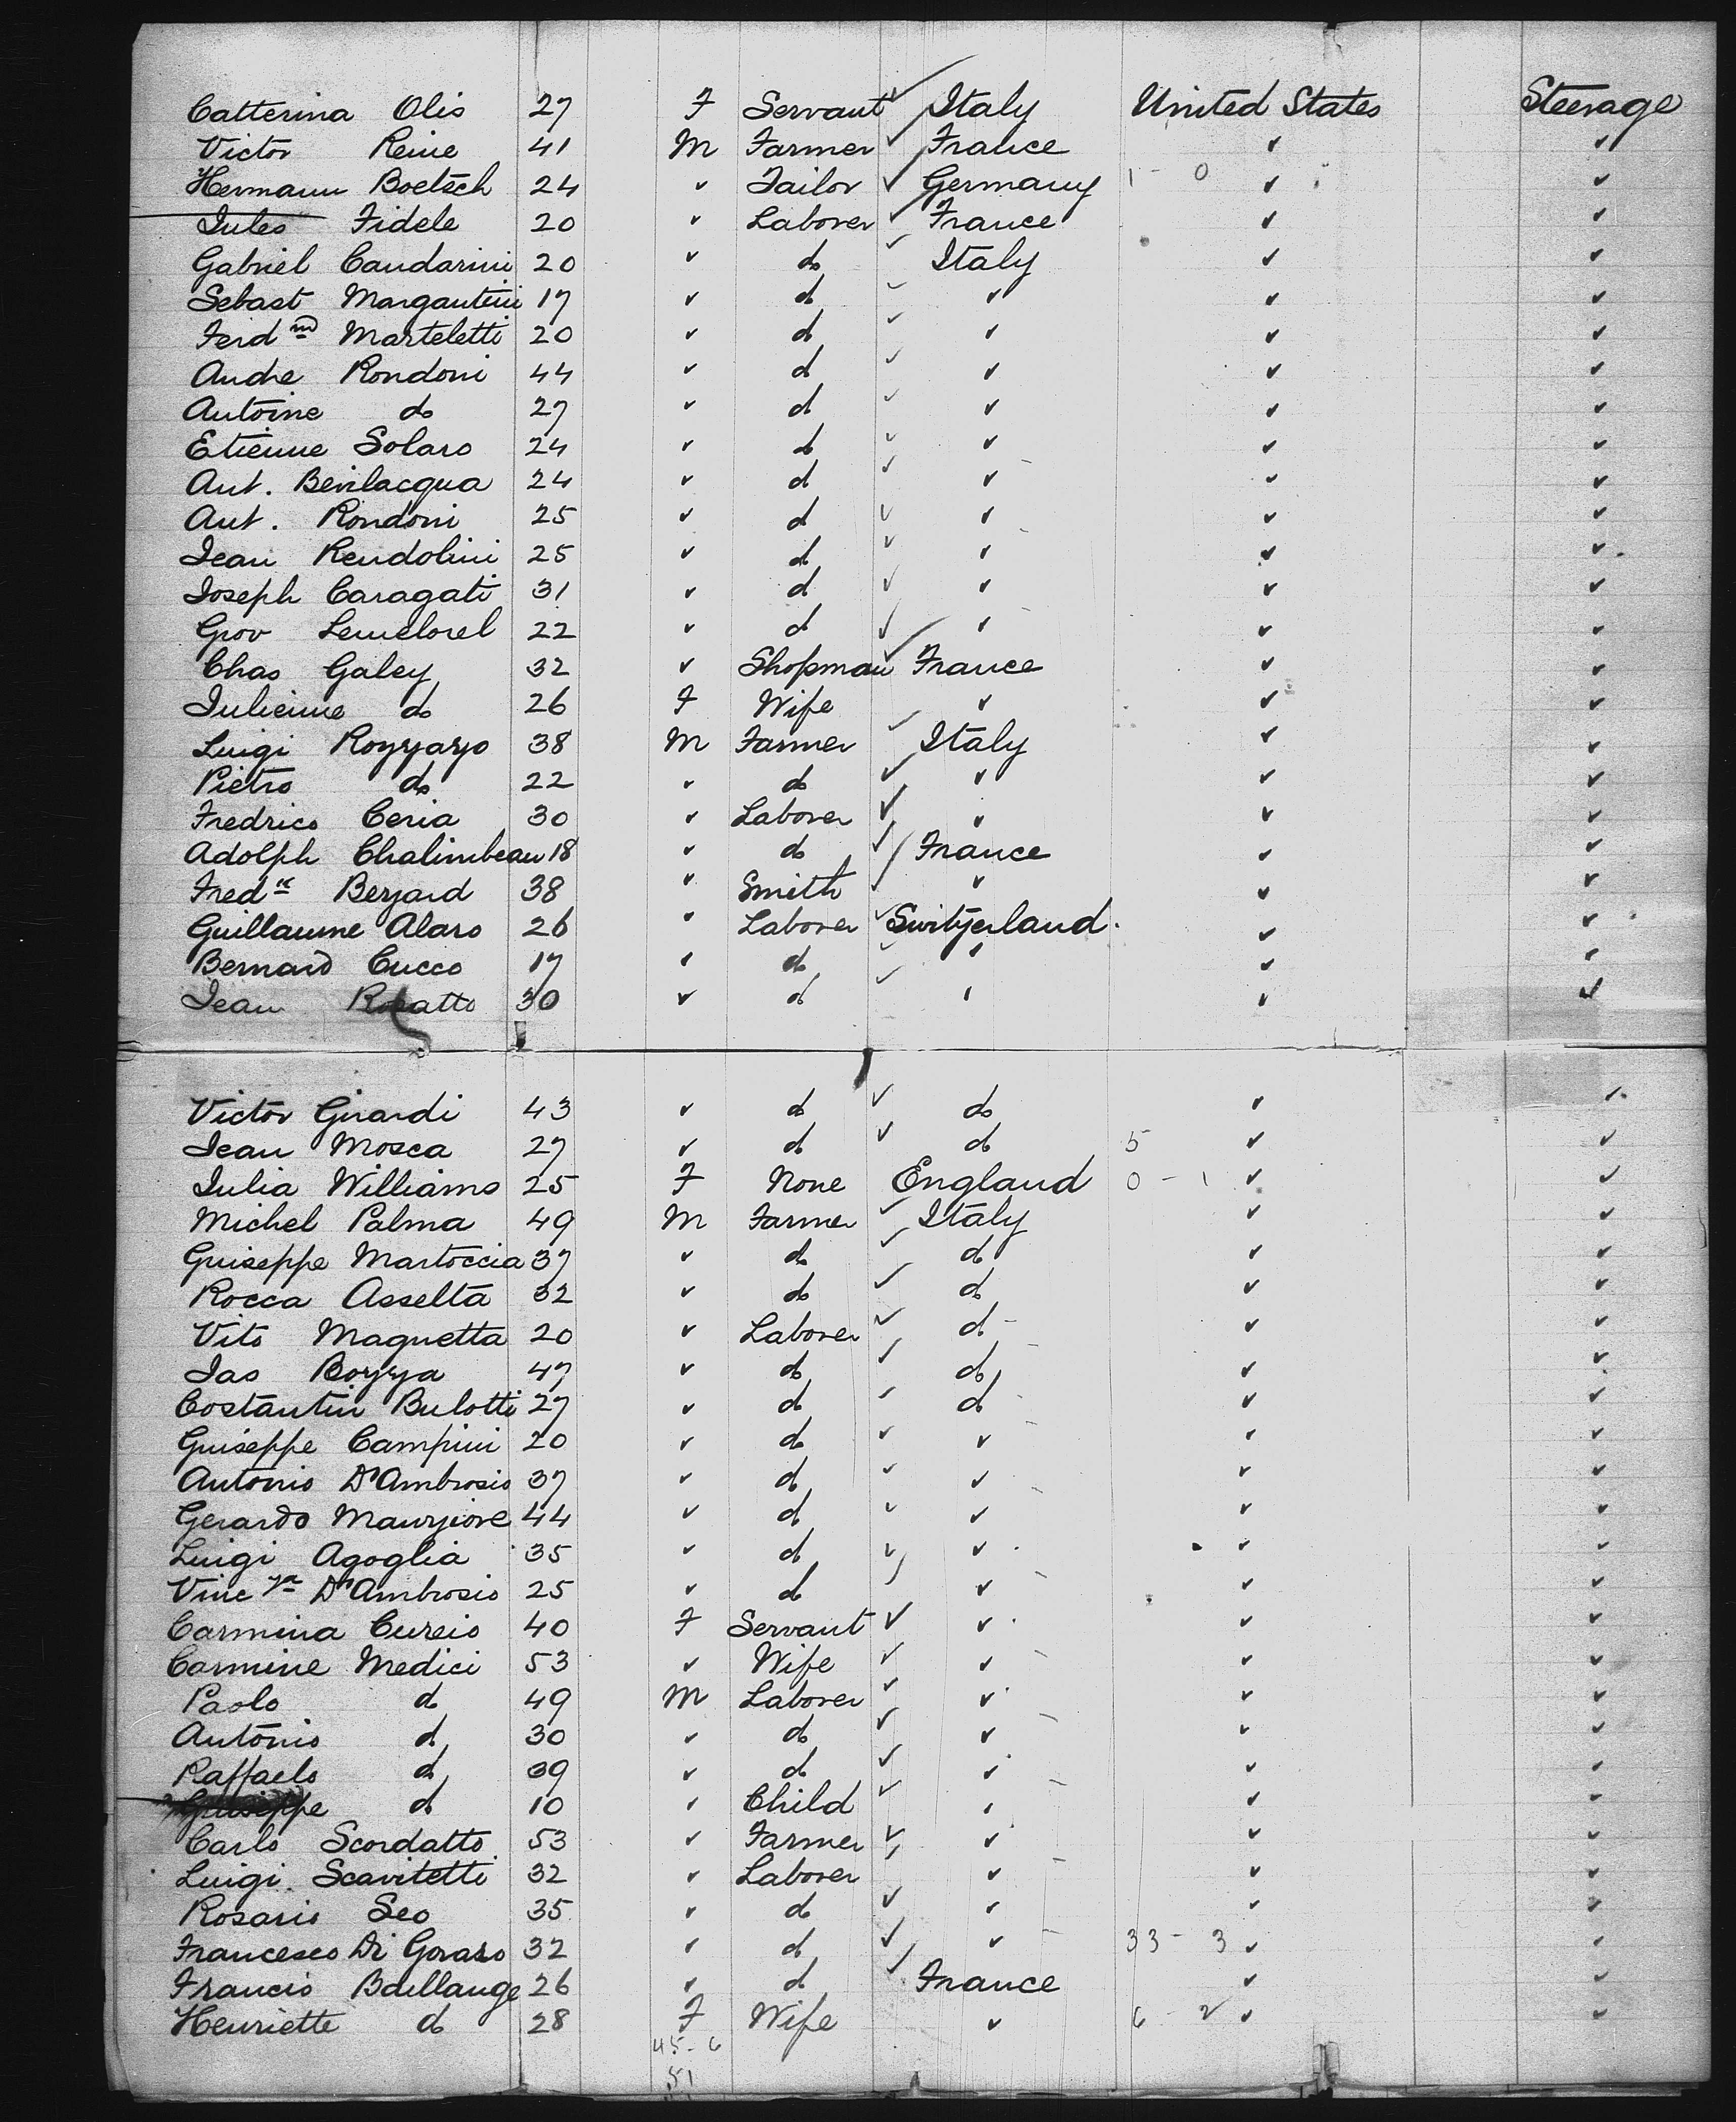 Catterina Olis 27 F Servant Italy United States Steerage
Victor Reine 41 M Farmer ✓ France ✓ ✓
Hermann Boetsch 24 ✓ Tailor ✓ Germany 1 - 0 ✓ ✓
Jules Fidele 20 ✓ Laborer ✓ France ✓ ✓
Gabriel Candarini 20 ✓ do ✓ Italy ✓ ✓
Sebast Margantini 17 ✓ do ✓ ✓ ✓ ✓
Ferdnd Marteletti 20 ✓ do ✓ ✓ ✓ ✓
Andre Rondoni 44 ✓ do ✓ ✓ ✓ ✓
Antoine do 27 ✓ do ✓ ✓ ✓ ✓
Etienne Solaro 24 ✓ do ✓ ✓ ✓ ✓
Ant. Bevilacqua 24 ✓ do ✓ ✓ ✓ ✓
Ant. Rondoni 25 ✓ do ✓ ✓ ✓ ✓
Jean Rendolini 25 ✓ do ✓ ✓ ✓ ✓
Joseph Caragati 31 ✓ do ✓ ✓ ✓ ✓
Giov 22 ✓ do ✓ ✓ ✓ ✓
Chas Galey 32 ✓ Shopman ✓ France ✓ ✓
Julienne do 26 F Wife ✓ ✓ ✓
Luigi Rozzazzo 38 M Farmer ✓ Italy ✓ ✓
Pietro do 22 ✓ do ✓ ✓ ✓ ✓
Fredrico Ceria 30 ✓ Laborer ✓ ✓ ✓ ✓
Adolph Chalimbeau 18 ✓ do ✓ France ✓ ✓
Fredk Bezard 38 ✓ Smith ✓ ✓ ✓ ✓
Guillaume Alaro 26 ✓ Laborer ✓ Switzerland ✓ ✓
Bernard Cucco 17 ✓ do ✓ ✓ ✓ ✓
Jean Rosatto 30 ✓ do ✓ ✓ ✓ ✓
Victor Girardi 43 ✓ do ✓ do ✓ ✓
Jean Mosca 27 ✓ do ✓ do 5 ✓ ✓
Julia Williams 25 F None England 0 - 1 ✓ ✓
Michel Palma 49 M Farmer ✓ Italy ✓ ✓
Guiseppe Martoccia 37 ✓ do ✓ do ✓ ✓
Rocca Asselta 32 ✓ do ✓ do ✓ ✓
Vito Magnetta 20 ✓ Laborer ✓ do ✓ ✓
Jas Bozza 47 ✓ do ✓ do ✓ ✓
Costantin Bulotti 27 ✓ do ✓ do ✓ ✓
Guiseppe Campini 20 ✓ do ✓ ✓ ✓ ✓
Antonio D'Ambrosio 37 ✓ do ✓ ✓ ✓ ✓
Gerardo Maurziore 44 ✓ do ✓ ✓ ✓ ✓
Luigi Agoglia 35 ✓ do ✓ ✓ ✓ ✓
Vincza D'Ambrosio 25 ✓ do ✓ ✓ ✓ ✓
Carmina Cureio 40 F Servant ✓ ✓ ✓ ✓
Carmine Medici 53 ✓ Wife ✓ ✓ ✓ ✓
Paolo do 49 M Laborer ✓ ✓ ✓ ✓
Antonio do 30 ✓ do ✓ ✓ ✓ ✓
Raffaelo do 39 ✓ do ✓ ✓ ✓ ✓
Guiseppe do 10 ✓ Child ✓ ✓ ✓ ✓
Carlo Scordatto 53 ✓ Farmer ✓ ✓ ✓ ✓
Luigi Scavitetti 32 ✓ Laborer ✓ ✓ ✓
Rosario Seo 35 ✓ do ✓ ✓ ✓ ✓
Francesco Di Goraso 32 ✓ do ✓ ✓ 33 - 3 ✓ ✓
Francis Baillange 26 ✓ do ✓ France ✓ ✓
Henriette do 28 F Wife ✓ 6 - 2 ✓ ✓
45 - 6
51